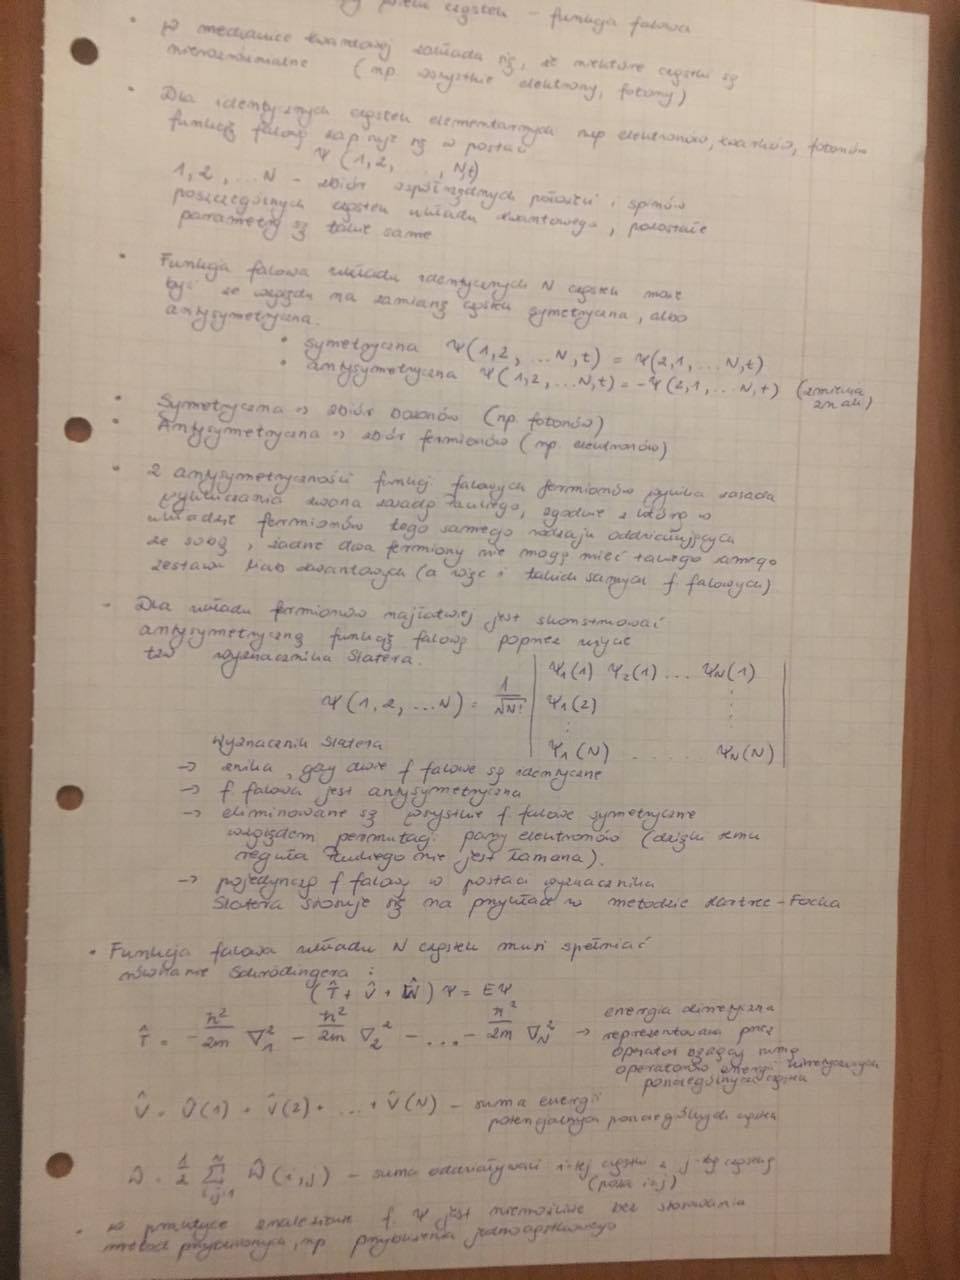 cząstek – funkcja falowa
• W mechanice kwantowej zakłada się, że niektóre cząstki są
nierozróżnialne (np. wszystkie elektrony, fotony)
• Dla identycznych cząstek elementarnych np elektronów, kwarków, fotonów
funkcję falową zapisuje się w postaci
Ψ(1,2, ..., N,t)
1, 2, ... N – zbiór współrzędnych położeń i spinów
poszczególnych cząstek układu kwantowego, pozostałe
parametry są takie same
• Funkcja falowa układu identycznych N cząstek może
być ze względu na zamianę cząstek symetryczna, albo
antysymetryczna.
• symetryczna Ψ(1,2, ...N,t) = Ψ(2,1, ...N,t)
• antysymetryczna Ψ(1,2, ...N,t) = -Ψ(2,1, ...N,t) (zmienia znak)
• Symetryczna → zbiór bozonów (np. fotonów)
• Antysymetryczna → zbiór fermionów (np. elektronów)
• Z antysymetryczności funkcji falowych fermionów wynika zasada
wykluczania zwana zasadą Pauliego, zgodnie z którą w
układzie fermionów tego samego rodzaju oddziałujących
ze sobą, żadne dwa fermiony nie mogą mieć takiego samego
zestawu liczb kwantowych (a więc i takich samych f. falowych)
- Dla układu fermionów najłatwiej jest skonstruować
antysymetryczną funkcję falową poprzez użycie
tzw wyznacznika Slatera.
Ψ(1,2, ...N) = 1/√N! | Ψ1(1) Ψ2(1) ... ΨN(1) |
| Ψ1(2) ⋮ |
| Ψ1(N) ... ΨN(N) |
Wyznacznik Slatera
→ znika, gdy dwie f falowe są identyczne
→ f falowa jest antysymetryczna
→ eliminowane są wszystkie f falowe symetryczne
względem permutacji pary elektronów (dzięki temu
reguła Pauliego nie jest łamana).
→ pojedynczą f falową w postaci wyznacznika
Slatera stosuje się na przykład w metodzie Hartree-Focka
• Funkcja falowa układu N cząstek musi spełniać
równanie Schrödingera :
(T̂ + V̂ + Ŵ) Ψ = EΨ
T̂ = -ħ²/2m ∇₁² - ħ²/2m ∇₂² - ... - ħ²/2m ∇N² → energia kinetyczna
reprezentowana przez
operator będący sumą
operatorów energii kinetycznych
poszczególnych cząstek
V̂ = V̂(1) + V̂(2) + ... + V̂(N) – suma energii
potencjalnych poszczególnych cząstek
Ŵ = 1/2 Σ i,j=1 N Ŵ(i,j) – suma oddziaływań i-tej cząstki z j-tą cząstką
(poza i=j)
• w praktyce znalezienie f. Ψ jest niemożliwe bez stosowania
metod przybliżonych, np przybliżenia jednocząstkowego